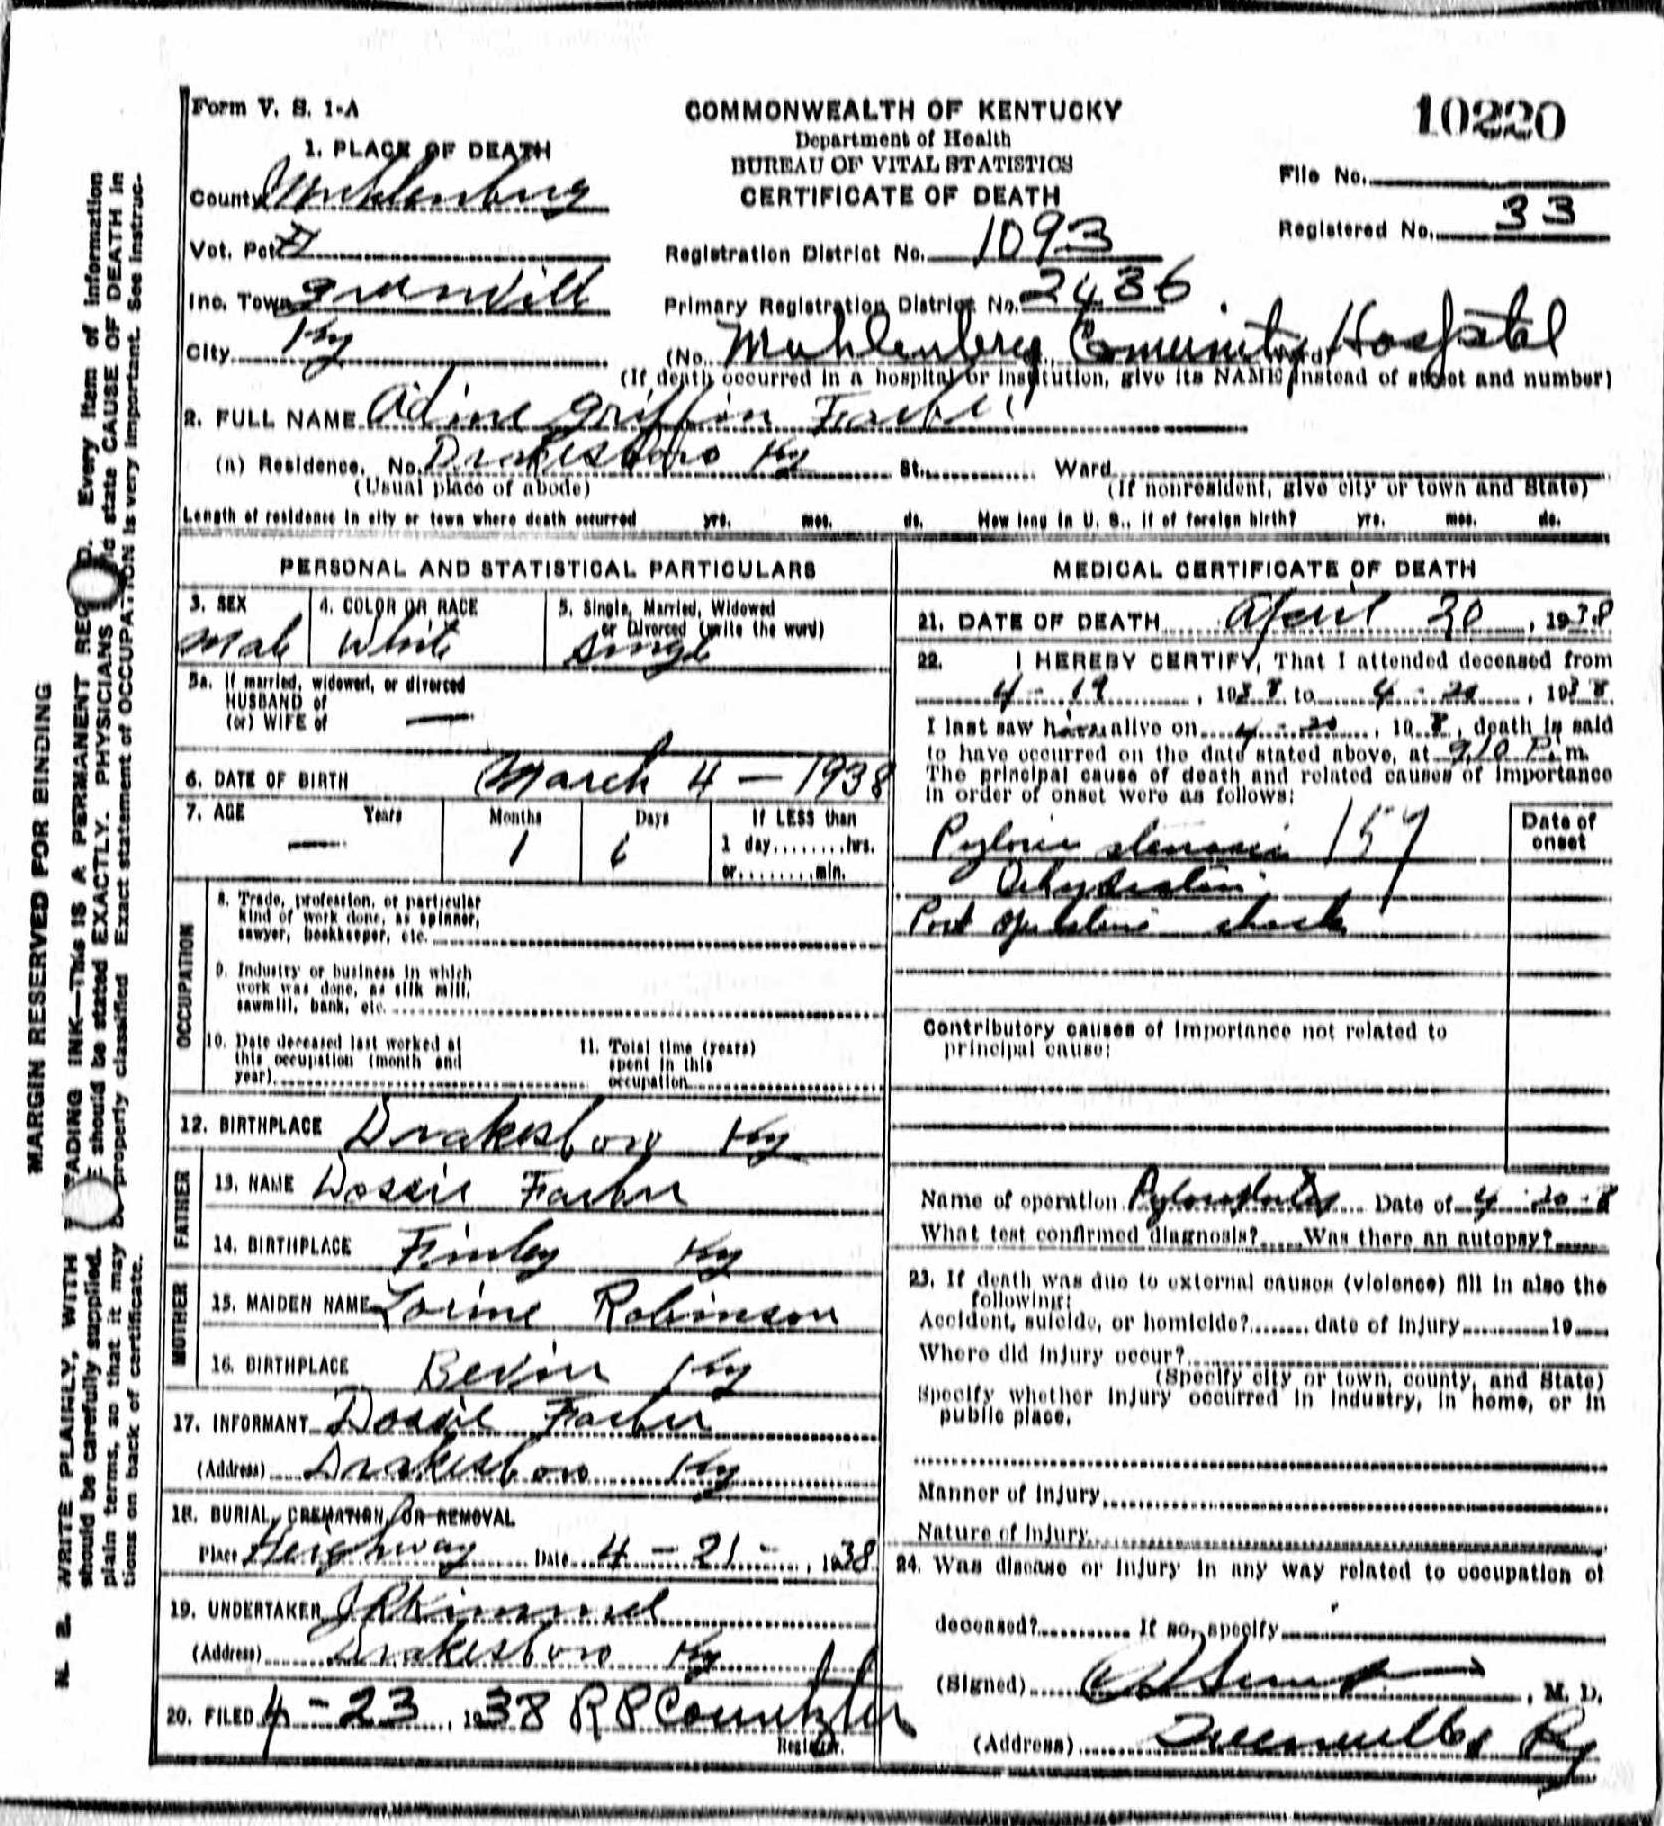 Form V. S. 1-A
COMMONWEALTH OF KENTUCKY
10220
Department of Health
BUREAU OF VITAL STATISTICS
CERTIFICATE OF DEATH
File No.
Registered No. 33
1. PLACE OF DEATH
County Muhlenburg
Vot. Pct.
Registration District No. 1093
Inc. Town
Primary Registration District No. 2436
City Ky
(No. Muhlenberg Comunity Hospital Ward)
(If death occurred in a hospital or institution, give its NAME instead of street and number)
2. FULL NAME Adine Griffin
(a) Residence. No. Drakesboro Ky St. Ward
(Usual place of abode) (If nonresident, give city or town and State)
Length of residence in city or town where death occurred yrs. mos. ds. How long in U. S., if of foreign birth? yrs. mos. ds.
PERSONAL AND STATISTICAL PARTICULARS
3. SEX 4. COLOR OR RACE 5. Single, Married, Widowed
or Divorced (write the word)
Male White Single
5a. If married, widowed, or divorced
HUSBAND of
(or) WIFE of —
6. DATE OF BIRTH March 4 — 1938
7. AGE Years Months Days If LESS than
— 1 1 day........hrs.
or........min.
OCCUPATION
8. Trade, profession, or particular
kind of work done, as spinner,
sawyer, bookkeeper, etc.
9. Industry or business in which
work was done, as silk mill,
sawmill, bank, etc.
10. Date deceased last worked at
this occupation (month and
year)
11. Total time (years)
spent in this
occupation
12. BIRTHPLACE Drakesboro Ky
FATHER
13. NAME Dossie
14. BIRTHPLACE Finley Ky
MOTHER
15. MAIDEN NAME Lorine Robinson
16. BIRTHPLACE Ky
17. INFORMANT Dossie
(Address) Drakesboro Ky
18. BURIAL, CREMATION, OR REMOVAL
Place Heighway Date 4 - 21 - , 1938
19. UNDERTAKER J R Kimmel
(Address) Drakesboro Ky
20. FILED 4 - 23, 1938 R P
Registrar.
MEDICAL CERTIFICATE OF DEATH
21. DATE OF DEATH April 20, 1938
22. I HEREBY CERTIFY, That I attended deceased from
4 - 19, 1938 to 4 - 20, 1938
I last saw him alive on 4 - 20, 19 8, death is said
to have occurred on the date stated above, at 9,10 P. m.
The principal cause of death and related causes of importance
in order of onset were as follows:
Date of
onset
Pyloric stenosis
Dehydration
Post operative shock
Contributory causes of importance not related to
principal cause:
Name of operation Date of 4 - 20 - 8
What test confirmed diagnosis? Was there an autopsy?
23. If death was due to external causes (violence) fill in also the
following:
Accident, suicide, or homicide? date of injury 19
Where did injury occur?
(Specify city or town, county, and State)
Specify whether injury occurred in industry, in home, or in
public place.
Manner of injury
Nature of injury
24. Was disease or injury in any way related to occupation of
deceased? If so, specify
(Signed) , M. D.
(Address) Ky
MARGIN RESERVED FOR BINDING